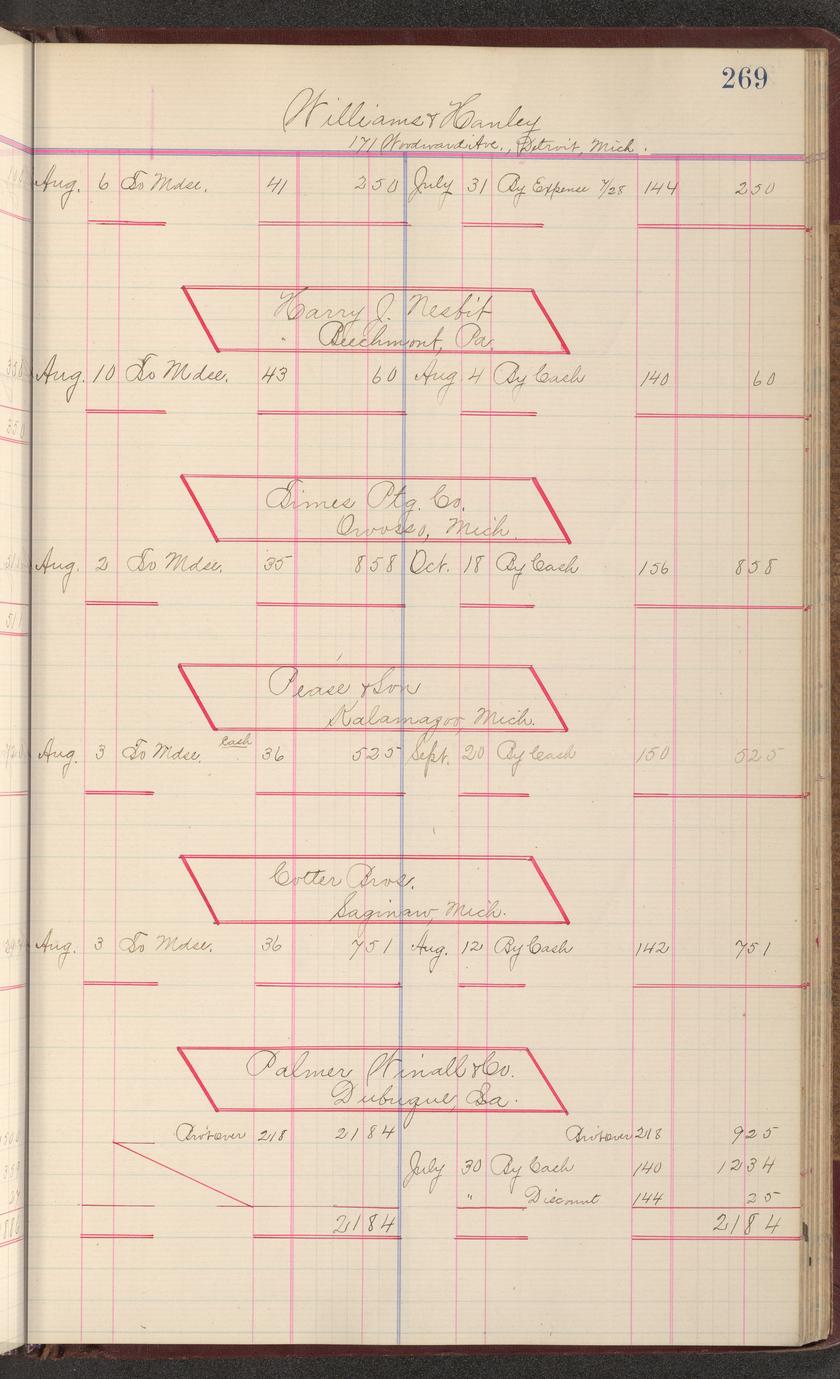 269
Williams & Hanley
171 Woodward Ave., Detroit, Mich.
Aug. 6 To Mdse. 41 250 July 31 By Expense 7/28 144 250
Harry J. Nesbit
Beechmont, Pa.
Aug. 10 To Mdse. 43 60 Aug 4 By Cash 140 60
Times Ptg. Co.
Owosso, Mich.
Aug. 2 To Mdse. 35 858 Oct. 18 By Cash 156 858
Pease & Son
Kalamazoo, Mich.
Aug. 3 To Mdse. Cash 36 525 Sept. 20 By Cash 150 525
Cotter Bros.
Saginaw, Mich.
Aug. 3 To Mdse. 36 751 Aug. 12 By Cash 142 751
Palmer Winall & Co.
Dubuque, Ia.
Bro't over 218 2184 Bro't over 218 925
July 30 By Cash 140 1234
" Discount 144 25
2184 2184